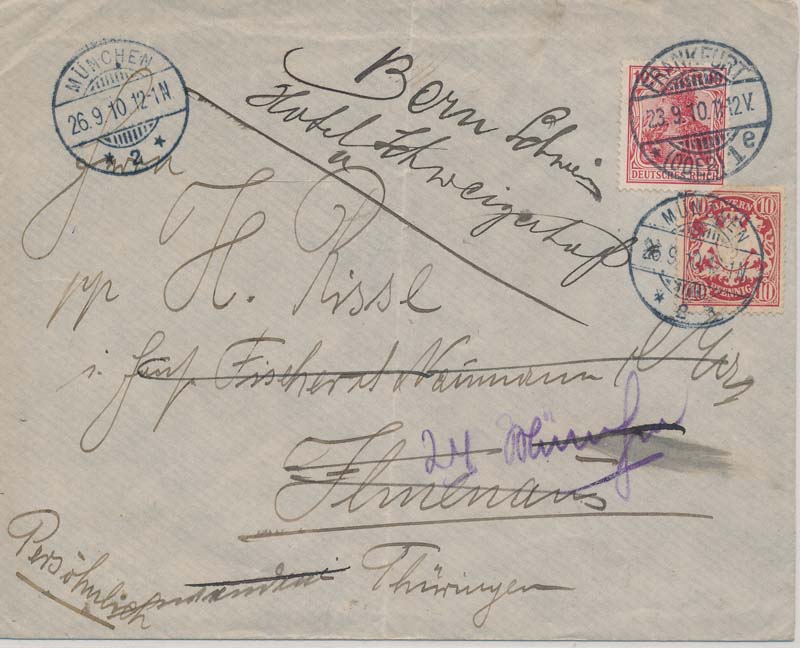 MÜNCHEN
26.9.10.12-1N
* 2 *
FRANKFURT
23.9.10.11-12V.
* (ODER) 1e
DEUTSCHES REICH
MÜNCHEN
26.9.10
* 2 *
BAYERN
10 10
PFENNIG
Bern Schweiz
Hotel Schweizerhof
Herrn
pp H. Rissl
i. Fischer & Naumann
24 München
Ilmenau
Thüringen
Persöhnlich